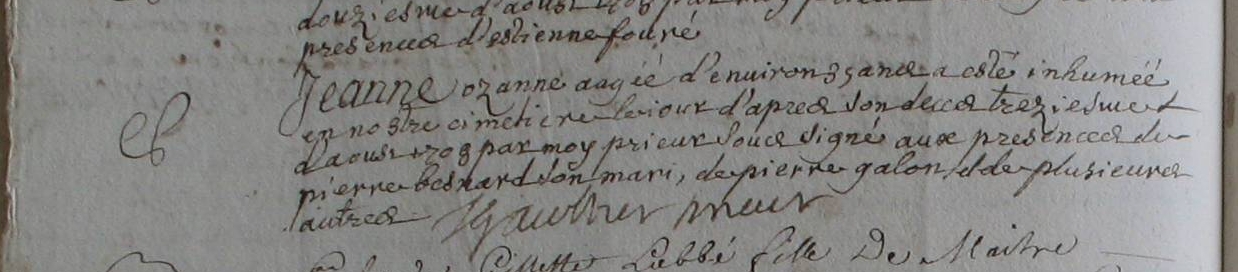 douziesme d'aoust 1708 par moy
presences d'estienne fouré
Jeanne ozanne aagéé d'environ 35 ans a esté inhuméé
en nostre cimetiere le jour d'apres son deces treziesme
d'aoust 1708 par moy prieur sous signé aux presences de
pierre besnard son mari, de pierre galon, et de plusieurs
autres Gaultier prieur
Gillette Labbé fille De Maitre